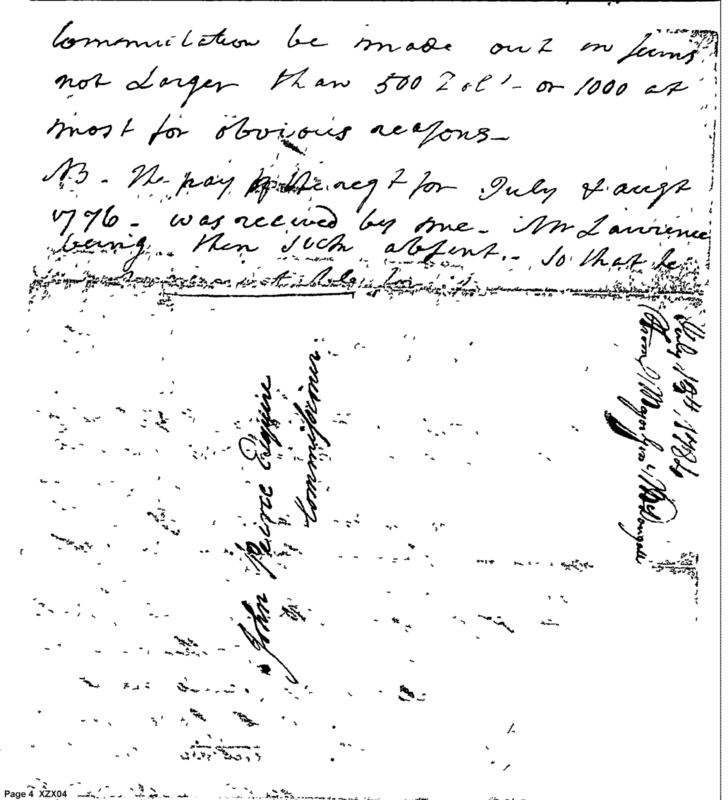 Commutation be made out in sums
not Larger than 500 Dolˡ - or 1000 at
most for obvious reasons -
NB - The pay of the regt for July & augt
1776 - was receved by me - Mr Lawrence
being then Sick absent - So that he
John Peirce Esquire
Commissioner.
July 1784
From Major Genˡ McDougall
Page 4 XZX04